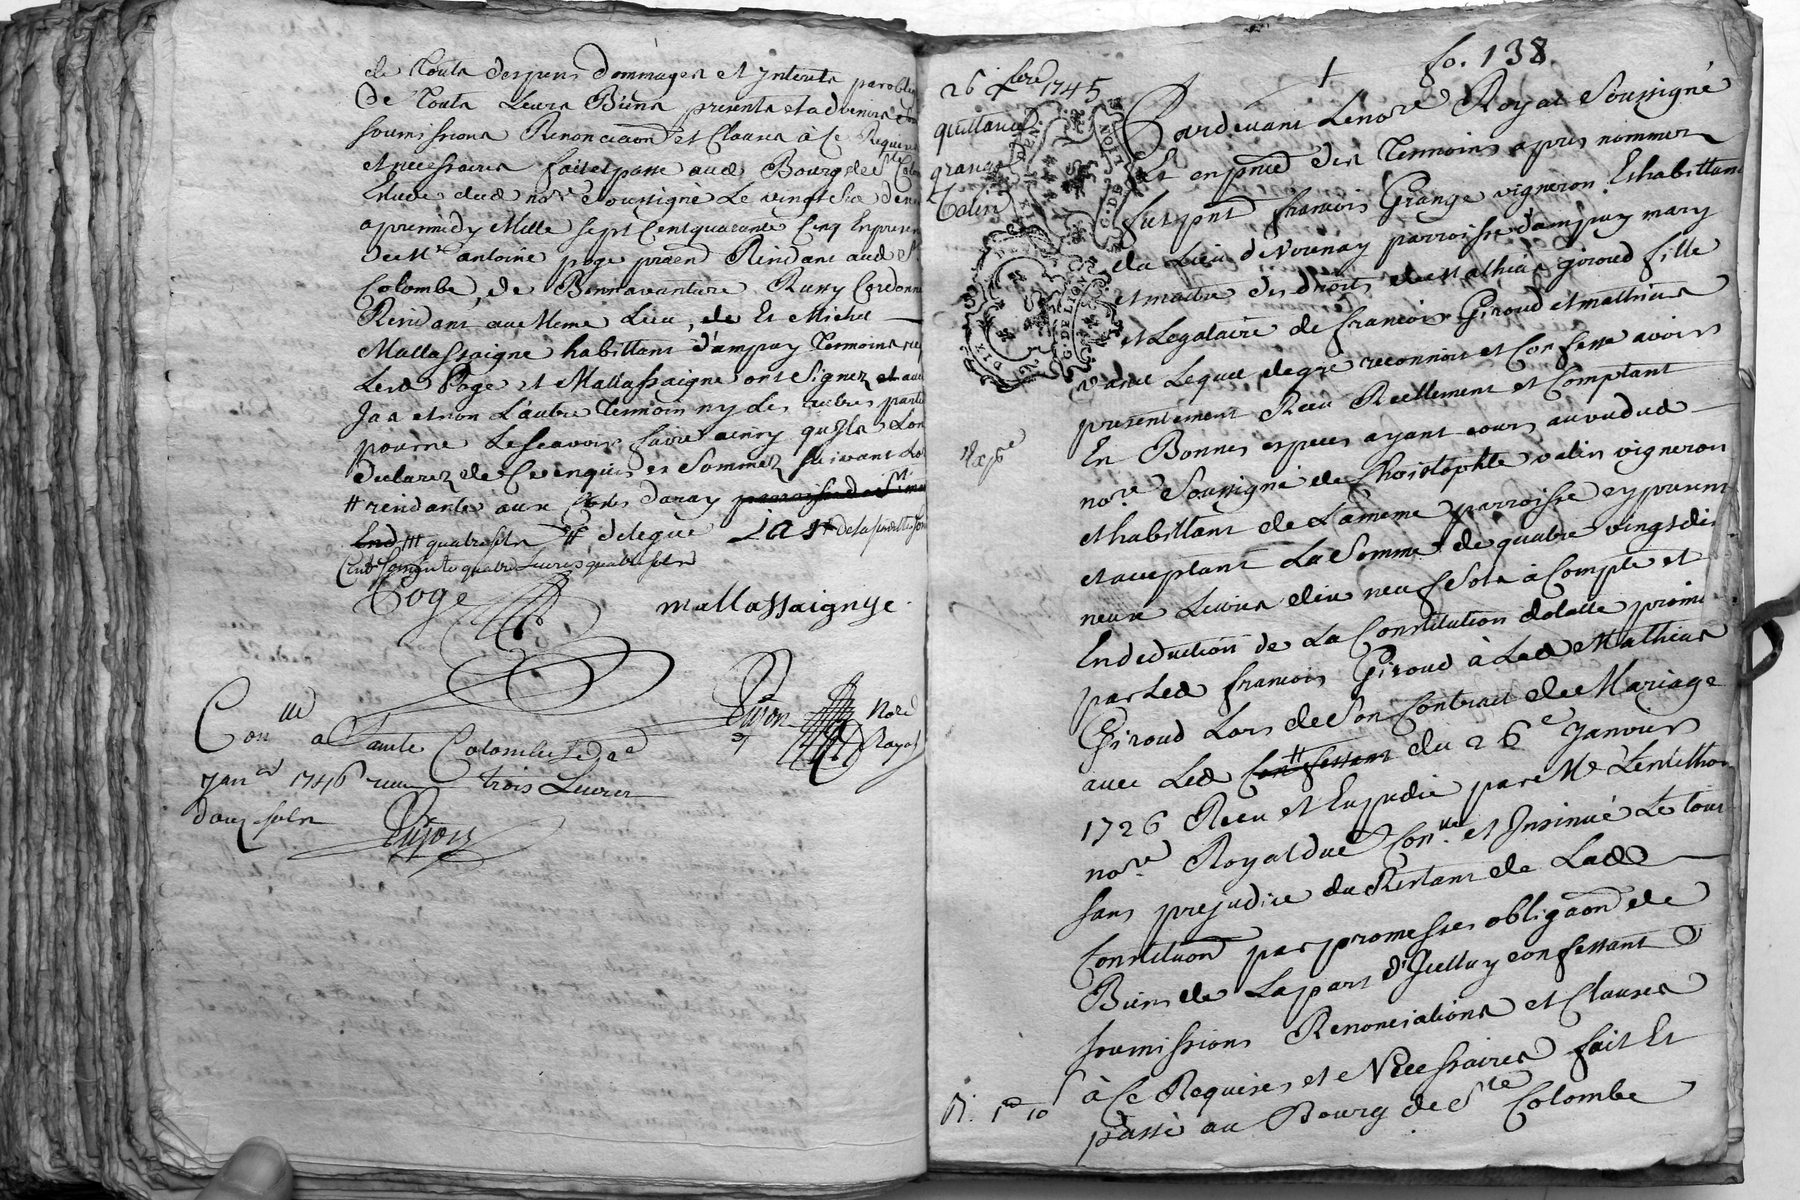 de Touts despens dommages et Interets par obli
De Touts Leurs Biens presents et advenirs
soumissions Renonciaõn et Clauses à Ce Requises
et necessaires fait et passé aud Bourg de Ste Colo
Etude dud nore Soussigné Le vingt six de
apres midy Mille sept Cent quarante Cinq En presen
de Mre antoine poge praẽn Residant aud Ste
Colombe, de Bonnavanture Russy Cordonn
Residant au Meme Lieu, de Et Michel
Mallassaigne habittant d'ampuy Temoins
Lesd Poge et Mallassaigne ont Signez et
Ja a et non L'autre Temoin ny les autres parties
pour ne Le scavoir faire ainsy qu'Ils L'on
declarez de Ce enquis et Sommez suivant
# residante aux Côtes daray paroisse de St
End ## quatre sols # deleguè
Cent Cinquante quatre Livres quatre sols
Poge
mallassaignye.
Dujon
Nore
Royal
Conllé a Sainte Colombe Le 2e
Janer 1746 recu trois Livres
douz sols
Dujon
fo. 138
26 Xbre 1745
quittance
grange
Valin
G. DE LION
G. DE LION
DIX
Pardevant Le nore Royal Soussigné
Et en pñce des Temoins apres nommez
fut pnt francois Grange vigneron Et habittant
du Lieu de Verenay parroisse d'ampuy mary
et maitre des droits de Mathias Giroud fille
et Legataire de francois Giroud et matthieu
vanel Lequel de gré reconnoit et Confesse avoir
presentement Recu Reellement et Comptant
En Bonnes especes ayant cours au vu dud
nore Soussigné de Christophle valin vigneron
et habittant de La meme parroisse cy present
et acceptant La Somme de quatre vingt dix
neuf Livres dix neuf Sols à Compte et
En deduction de La Constitution dotalle promi
par Led francois Giroud à Lad Mathias
Giroud Lors de Son Contrait de Mariage
avec Led Confessant du 26e Janvier
1726 Recu et Expedié par Me Lentillon
nore Royal duë Conllé et Insinué Le tout
sans prejudice du Restant de Lad
Constituõn par promesses obligaõn de
Biens de La part d'Icelluy confessant
soumissions Renonciations et Clauses
à Ce Requises et Necessaires fait Et
passé au Bourg de Ste Colombe